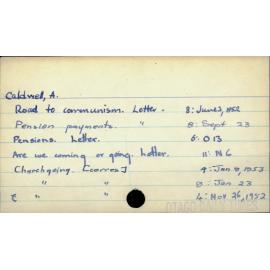 Caldwell, A.
Road to communism. Letter. 8: June 3, 1952
Pension payments. " 8: Sept 23
Pensions. Letter. 6: O 13
Are we coming or going. Letter. 11: N 6
Churchgoing [corres] 4: Jan 9, 1953
" " 8: Jan 23
" " 4: Nov 26, 1952